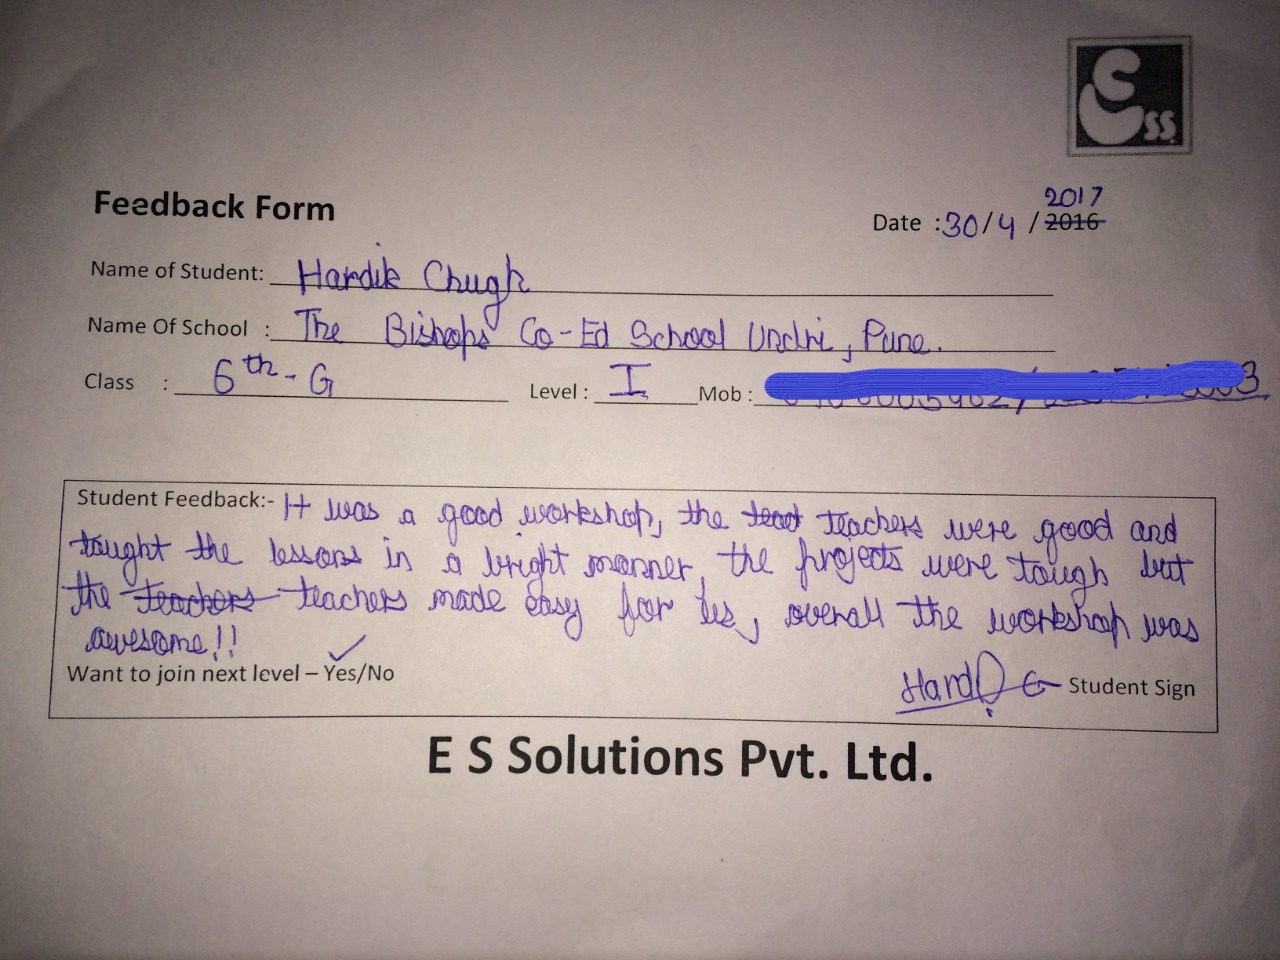 ESS
2017
Feedback Form
Date :30/4/2016
Name of Student: Hardik Chugh
Name Of School : The Bishops Co-Ed School Undri, Pune.
Class : 6th - G Level : I Mob :
Student Feedback:- It was a good workshop, the teachers were good and
taught the lessons in a bright manner, the projects were tough but
the teachers teachers made easy for us, overall the workshop was
awesome!!
Want to join next level – Yes/No
Student Sign
E S Solutions Pvt. Ltd.